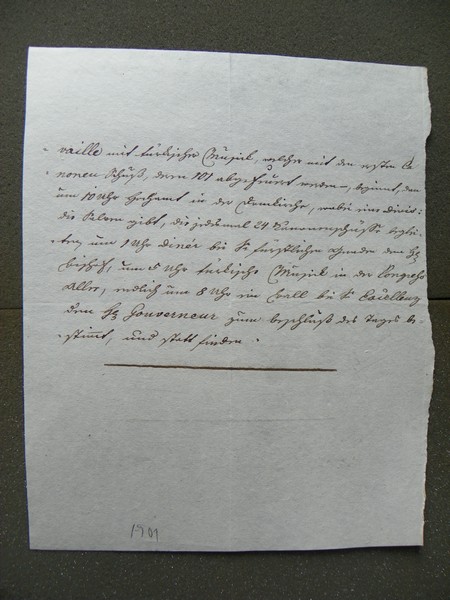 vaille mit türkischer Musick, welche mit den ersten Ca-
nonen Schuß, deren 101 abgefeuert werden, beginnt, dann
um 10 Uhr Hochamt in der Domkirche, wobei eine Divis:
die Salven gibt, die jedesmal 24 Canonenschüsse beglei-
ten, um 1 Uhr Dinér bei Sr fürstlichen Gnaden dem H:
Bischof, um 5 Uhr türkische Musick in der
Allee, endlich um 8 Uhr ein Ball bei Sr Excellenz
dem H: Gouverneur zum Beschluß des Tages be-
stimmt, und statt finden.